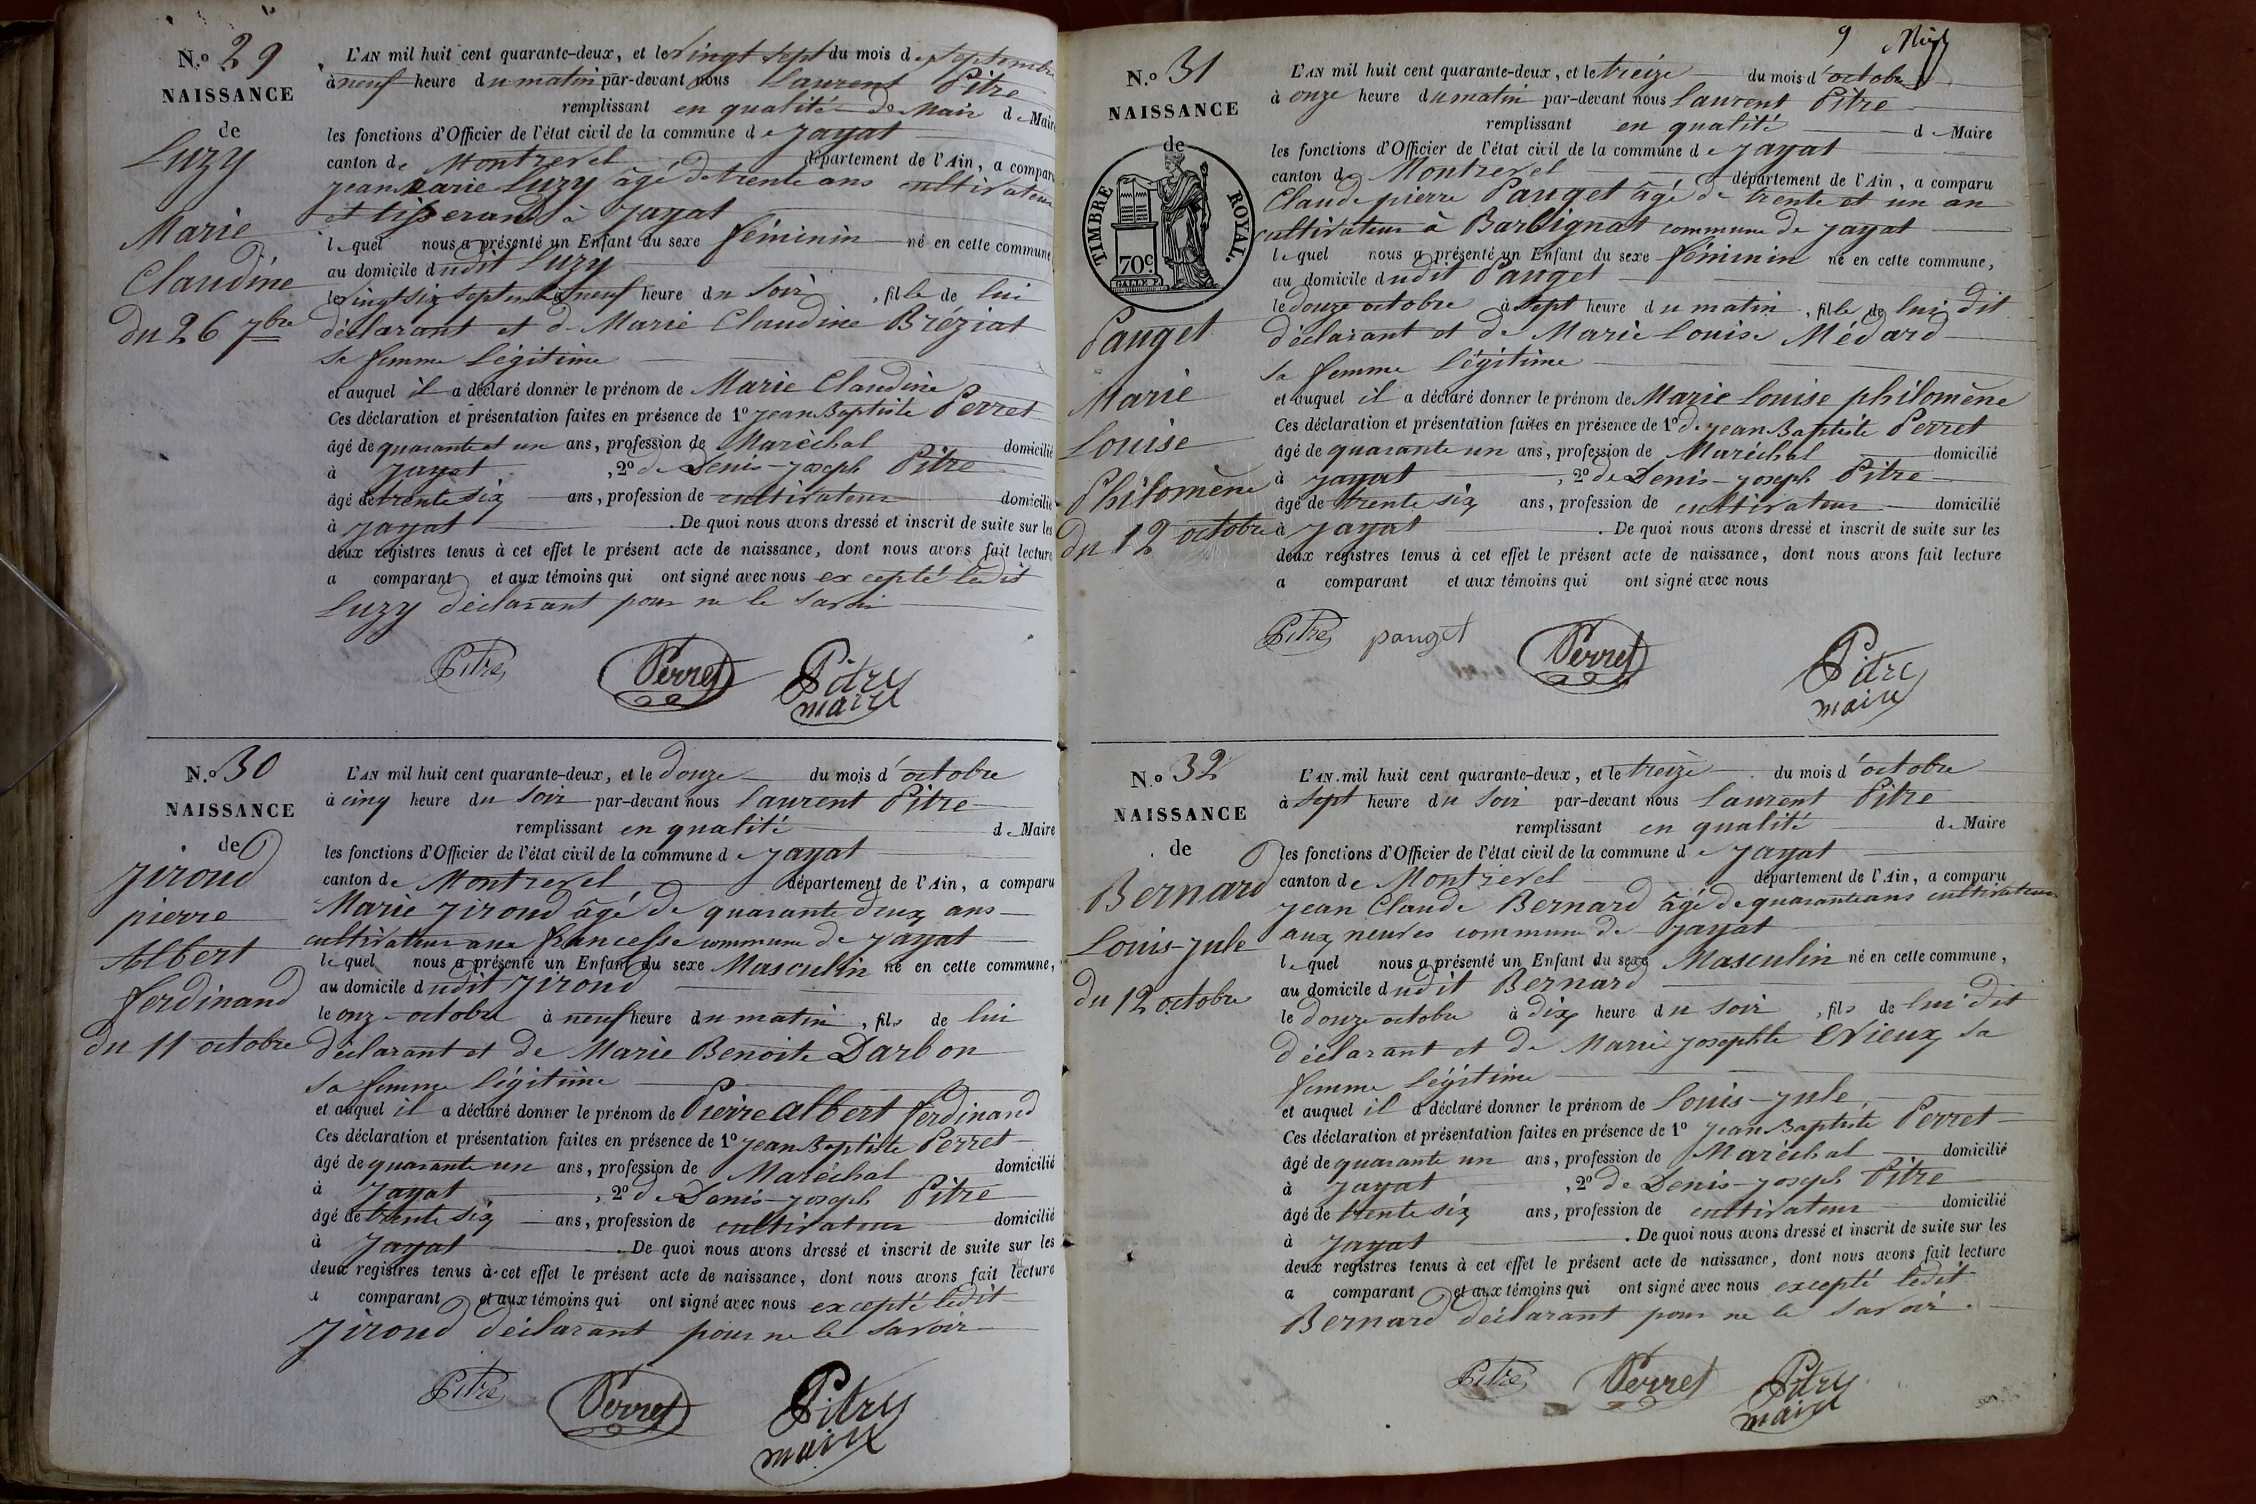 N.o 29
NAISSANCE
de
Luzy
Marie
Claudine
du 26 7bre
L'AN mil huit cent quarante-deux, et le vingt sept du mois de septembre
à neuf heure du matin par-devant nous Laurent Pitre
remplissant en qualité de Mair de Maire
les fonctions d'Officier de l'état civil de la commune de Jayat
canton de Montrevel département de l'Ain, a comparu
jean marie Luzy âgé de trente ans cultivateur
et tisserand à Jayat
lequel nous a présenté un Enfant du sexe féminin né en cette commune
au domicile dudit Luzy
le vingt six septembre à neuf heure du soir, fille de lui
déclarant et de Marie Claudine Bréziat
sa femme légitime
et auquel il a déclaré donner le prénom de Marie Claudine
Ces déclaration et présentation faites en présence de 1o jean Baptiste Perret
âgé de quarante et un ans, profession de Maréchal domicilié
à Jayat, 2o de Denis-joseph Pitre
âgé de trente six ans, profession de cultivateur domicilié
à Jayat. De quoi nous avons dressé et inscrit de suite sur les
deux registres tenus à cet effet le présent acte de naissance, dont nous avons fait lecture
a comparant et aux témoins qui ont signé avec nous excepté ledit
Luzy déclarant pour ne le savoir
Pitre Perret Pitre
maire
N.o 30
NAISSANCE
de
Giroud
pierre
Albert
ferdinand
du 11 octobre
L'AN mil huit cent quarante-deux, et le douze du mois d'octobre
à cinq heure du soir par-devant nous Laurent Pitre
remplissant en qualité de Maire
les fonctions d'Officier de l'état civil de la commune de Jayat
canton de Montrevel département de l'Ain, a comparu
Marie Giroud âgé de quarante deux ans
cultivateur aux francesse commune de Jayat
lequel nous a présenté un Enfant du sexe Masculin né en cette commune,
au domicile dudit Giroud
le onze octobre à neuf heure du matin, fils de lui
déclarant et de Marie Benoite Darbon
sa femme légitime
et auquel il a déclaré donner le prénom de Pierre albert ferdinand
Ces déclaration et présentation faites en présence de 1o jean Baptiste Perret
âgé de quarante un ans, profession de Maréchal domicilié
à Jayat, 2o de Denis-joseph Pitre
âgé de trente six ans, profession de cultivateur domicilié
à Jayat. De quoi nous avons dressé et inscrit de suite sur les
deux registres tenus à cet effet le présent acte de naissance, dont nous avons fait lecture
a comparant et aux témoins qui ont signé avec nous excepté ledit
Giroud déclarant pour ne le savoir
Pitre Perret Pitre
maire
9
N.o 31
NAISSANCE
de
TIMBRE ROYAL.
70c
Pauget
Marie
Louise
Philomène
du 12 octobre
L'AN mil huit cent quarante-deux, et le treize du mois d'octobre
à onze heure du matin par-devant nous Laurent Pitre
remplissant en qualité de Maire
les fonctions d'Officier de l'état civil de la commune de Jayat
canton de Montrevel département de l'Ain, a comparu
Claude pierre Pauget âgé de trente et un an
cultivateur à Barbignat commune de Jayat
lequel nous a présenté un Enfant du sexe féminin né en cette commune,
au domicile dudit Pauget
le douze octobre à sept heure du matin, fille de lui dit
déclarant et de Marie Louise Médard
sa femme légitime
et auquel il a déclaré donner le prénom de Marie Louise philomène
Ces déclaration et présentation faites en présence de 1o de jean Baptiste Perret
âgé de quarante un ans, profession de Maréchal domicilié
à Jayat, 2o de Denis-joseph Pitre
âgé de trente six ans, profession de cultivateur domicilié
à Jayat. De quoi nous avons dressé et inscrit de suite sur les
deux registres tenus à cet effet le présent acte de naissance, dont nous avons fait lecture
a comparant et aux témoins qui ont signé avec nous
Pitre pauget Perret Pitre
maire
N.o 32
NAISSANCE
de
Bernard
Louis-Jule
du 12 octobre
L'AN mil huit cent quarante-deux, et le treize du mois d'octobre
à sept heure du soir par-devant nous Laurent Pitre
remplissant en qualité de Maire
les fonctions d'Officier de l'état civil de la commune de Jayat
canton de Montrevel département de l'Ain, a comparu
jean Claude Bernard âgé de quarante ans cultivateur
aux neuves commune de Jayat
lequel nous a présenté un Enfant du sexe Masculin né en cette commune,
au domicile dudit Bernard
le douze octobre à dix heure du soir, fils de lui dit
déclarant et de Marie josephte Nieux sa
femme légitime
et auquel il a déclaré donner le prénom de Louis-Jule
Ces déclaration et présentation faites en présence de 1o jean Baptiste Perret
âgé de quarante un ans, profession de Maréchal domicilié
à Jayat, 2o de Denis-joseph Pitre
âgé de trente six ans, profession de cultivateur domicilié
à Jayat. De quoi nous avons dressé et inscrit de suite sur les
deux registres tenus à cet effet le présent acte de naissance, dont nous avons fait lecture
a comparant et aux témoins qui ont signé avec nous excepté ledit
Bernard déclarant pour ne le savoir.
Pitre Perret Pitre
maire